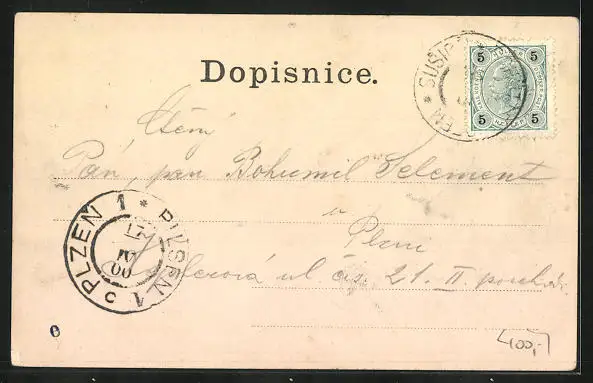 Dopisnice.
SUŠICE
5 5
5 5
Ctěný
Pán, pan Bohumil Selement
v
Plzni
ul čís. 21. II. poschodí.
PLZEN 1 * PILSEN 1
17
IV
00
400,-